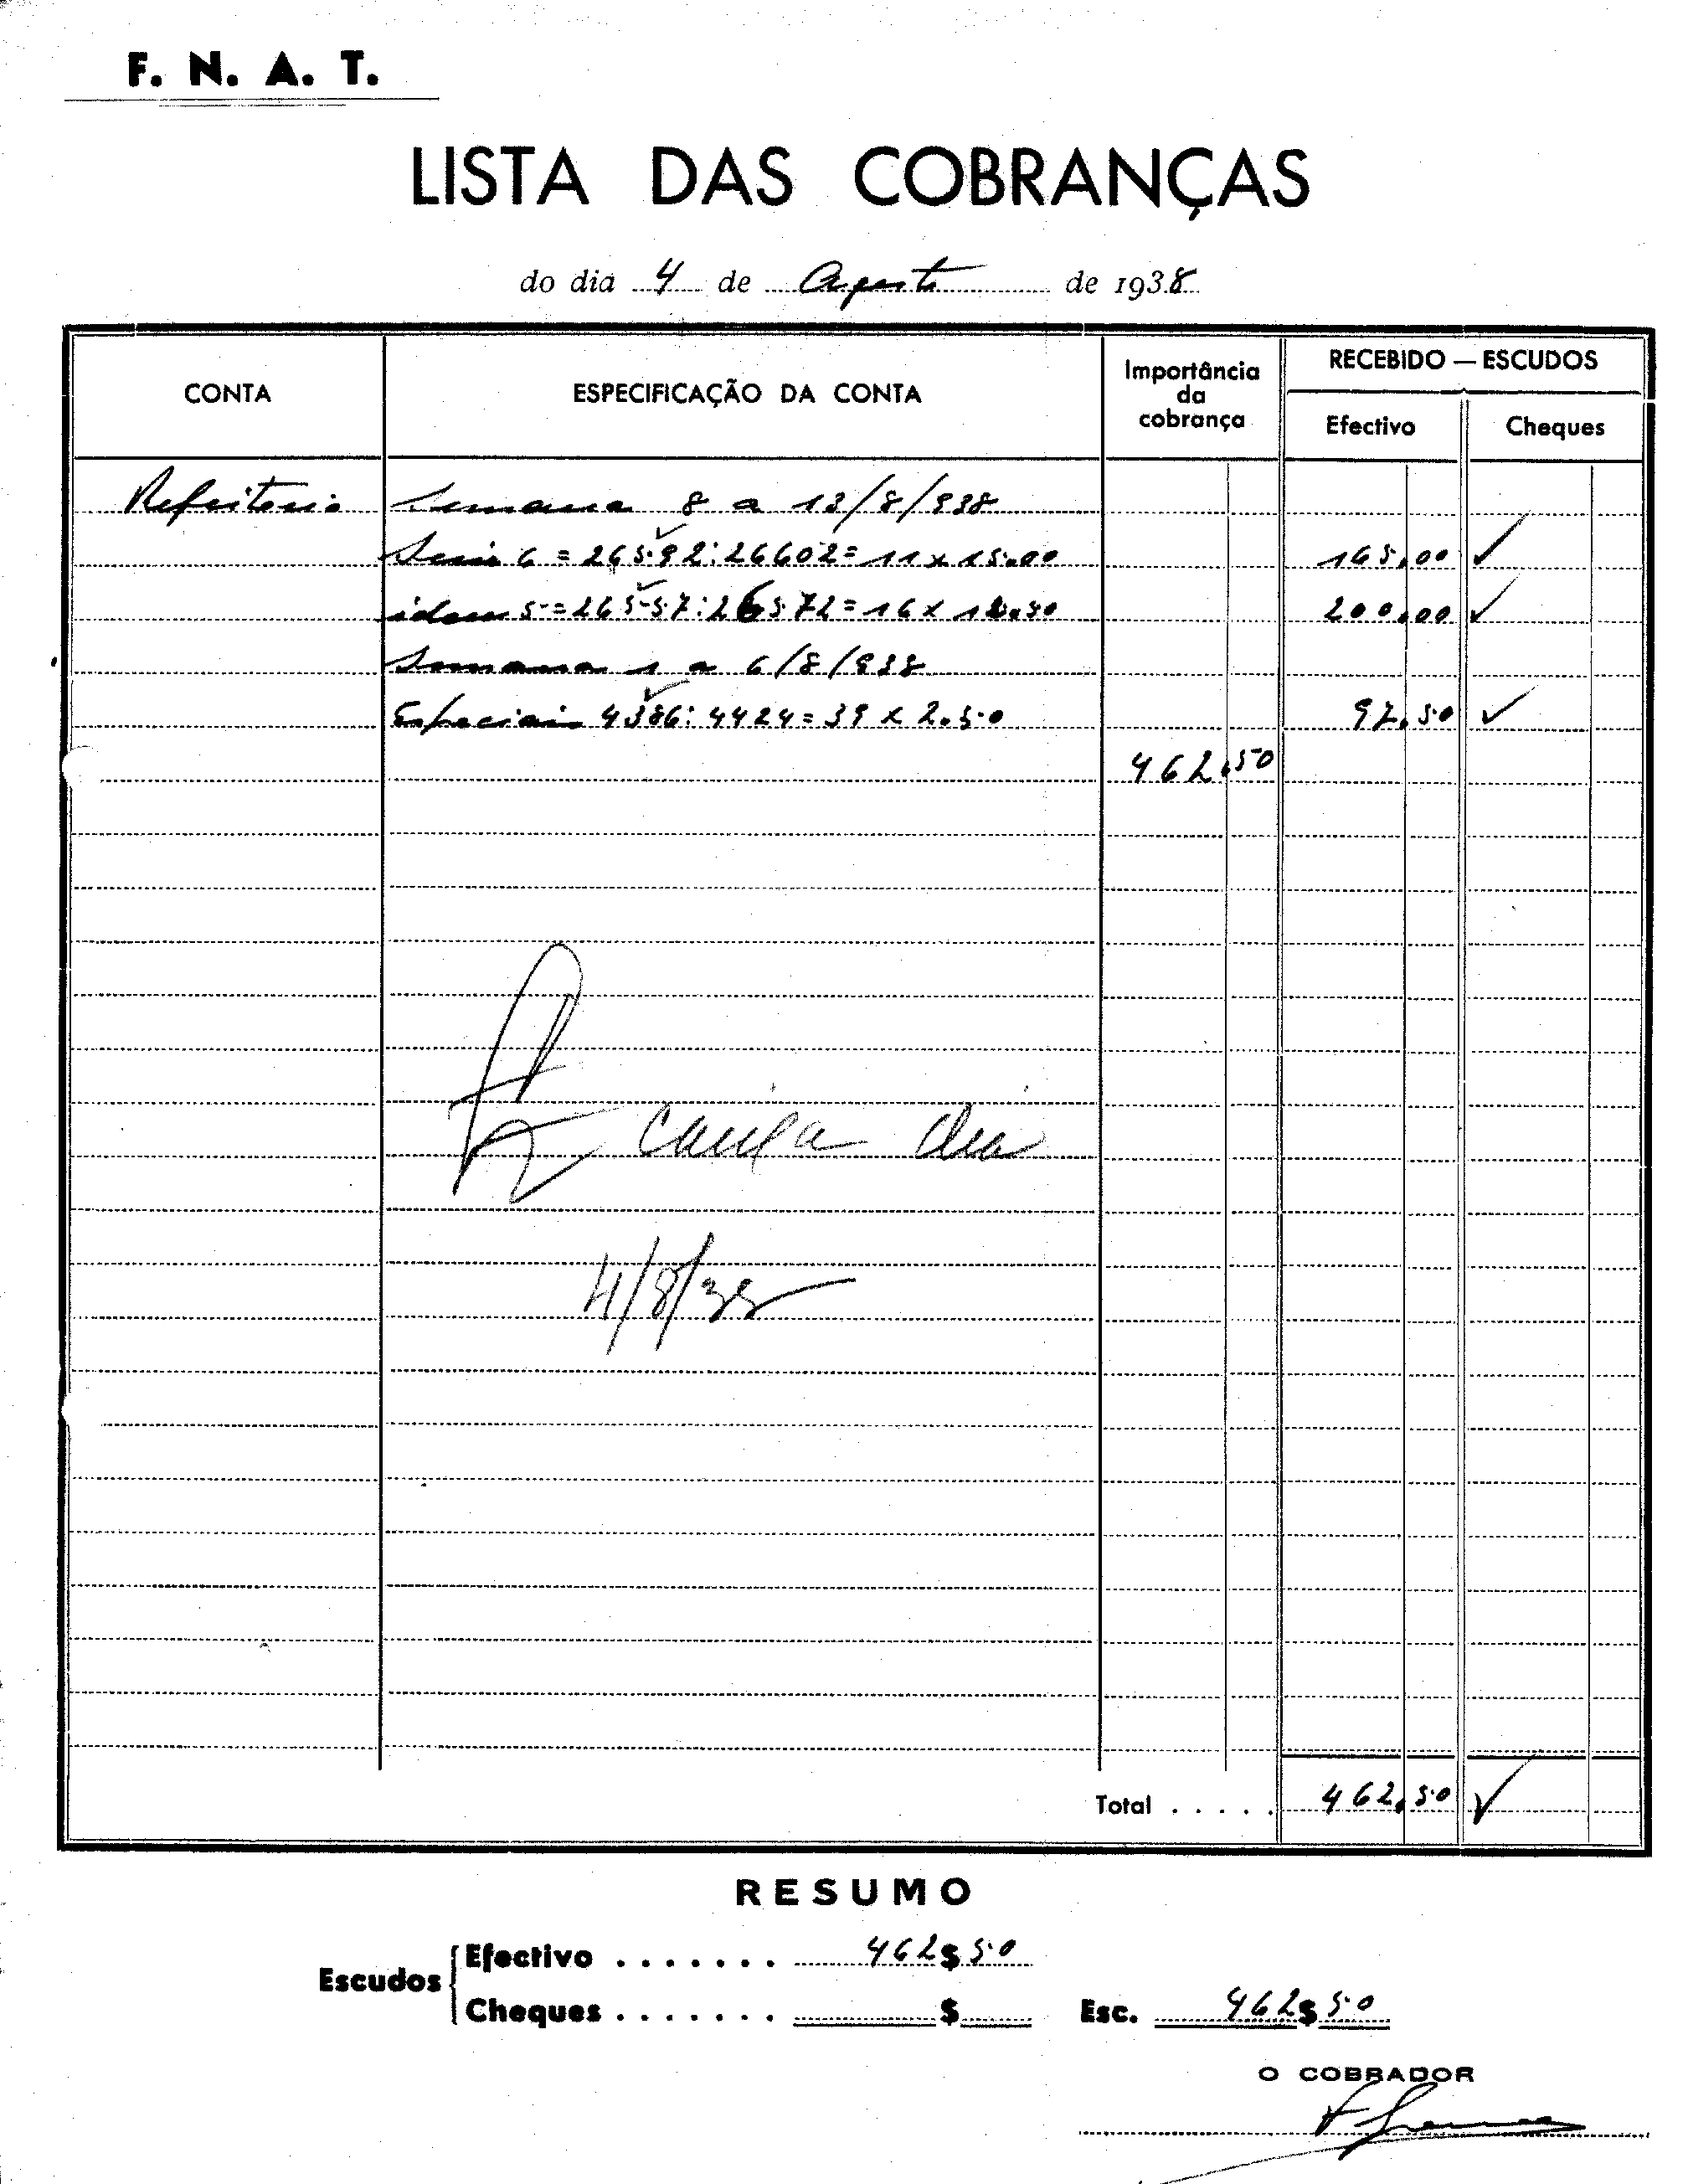 F. N. A. T.
LISTA DAS COBRANÇAS
do dia 4 de Agosto de 1938
CONTA ESPECIFICAÇÃO DA CONTA Importância da cobrança RECEBIDO — ESCUDOS
Efectivo Cheques
Refeitorio Semana 8 a 13/8/938
Serie 6 = 26592:26602 = 11 x 15.00 165,00
idem 5 = 26557:26572 = 16 x 12.50 200,00
Semana 1 a 6/8/938
Especiais 4386:4424 = 39 x 2.50 97,50
462,50
caixa dia
4/8/38
Total . . . . . 462,50
RESUMO
Escudos Efectivo . . . . . . . 462$50
Cheques . . . . . . . $ Esc. 462$50
O COBRADOR